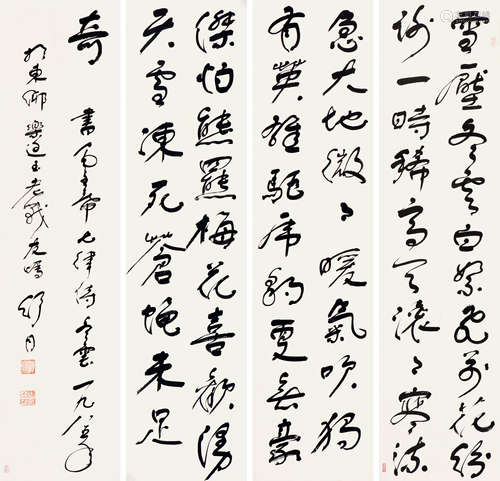 雪壓冬雲白絮飛萬花紛
謝一時稀高天滾々寒流
急大地微々暖氣吹獨
有英雄驅虎豹更無豪
傑怕熊羆梅花喜歡漫
天雪凍死蒼蠅未足
奇 書毛主席七律詩冬雲一九八五年
老戰友囑 舒同